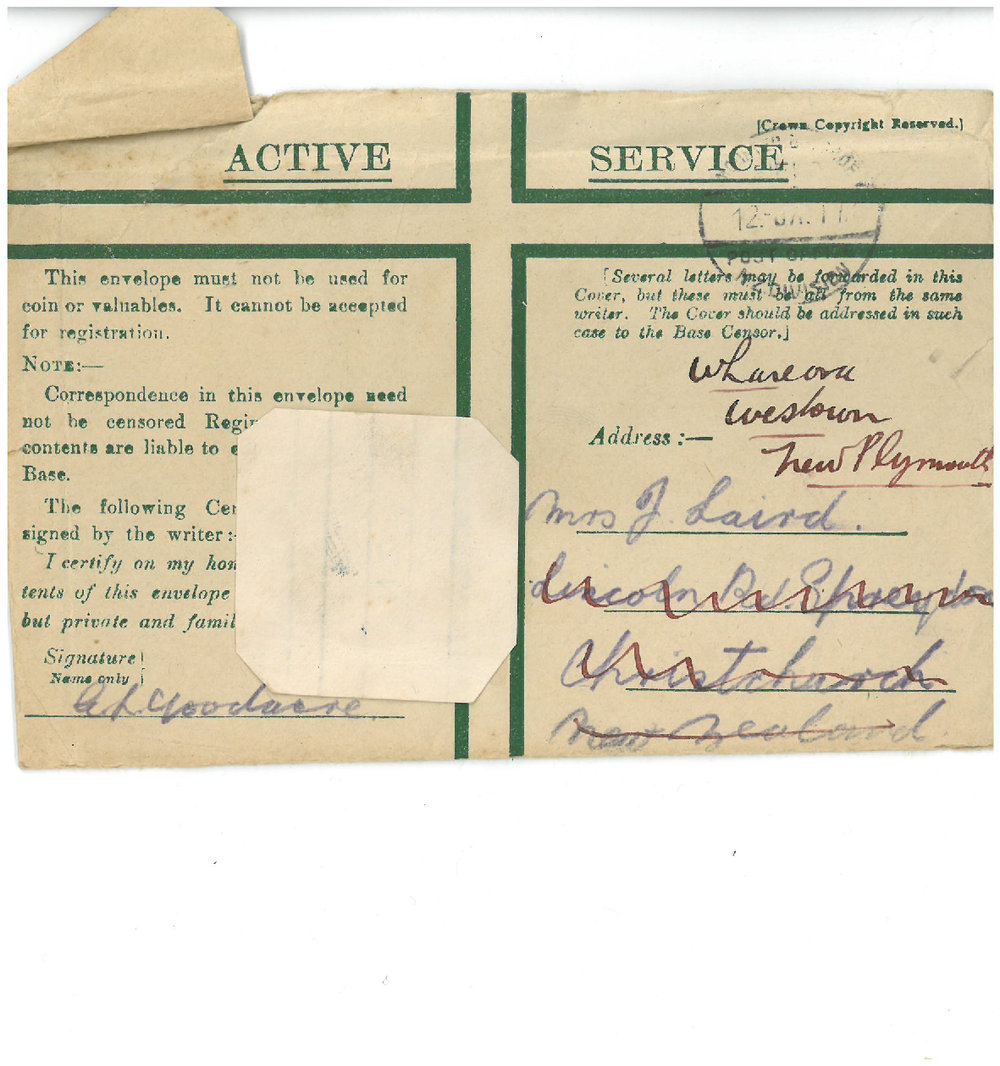 [Crown Copyright Reserved.]
ACTIVE SERVICE
This envelope must not be used for
coin or valuables. It cannot be accepted
for registration.
NOTE:—
Correspondence in this envelope need
not be censored
contents are liable to
Base.
The following
signed by the writer:-
I certify on my
tents of this envelope
but private and
Signature
Name only
G.L. Goodacre
POST
12.
DIVISION
[Several letters may be forwarded in this
Cover, but these must be all from the same
writer. The Cover should be addressed in such
case to the Base Censor.]
Whareora
Westown
New Plymouth
Address :—
Mrs J. Laird.
Lincoln Rd. Spreydon
Christchurch
New Zealand